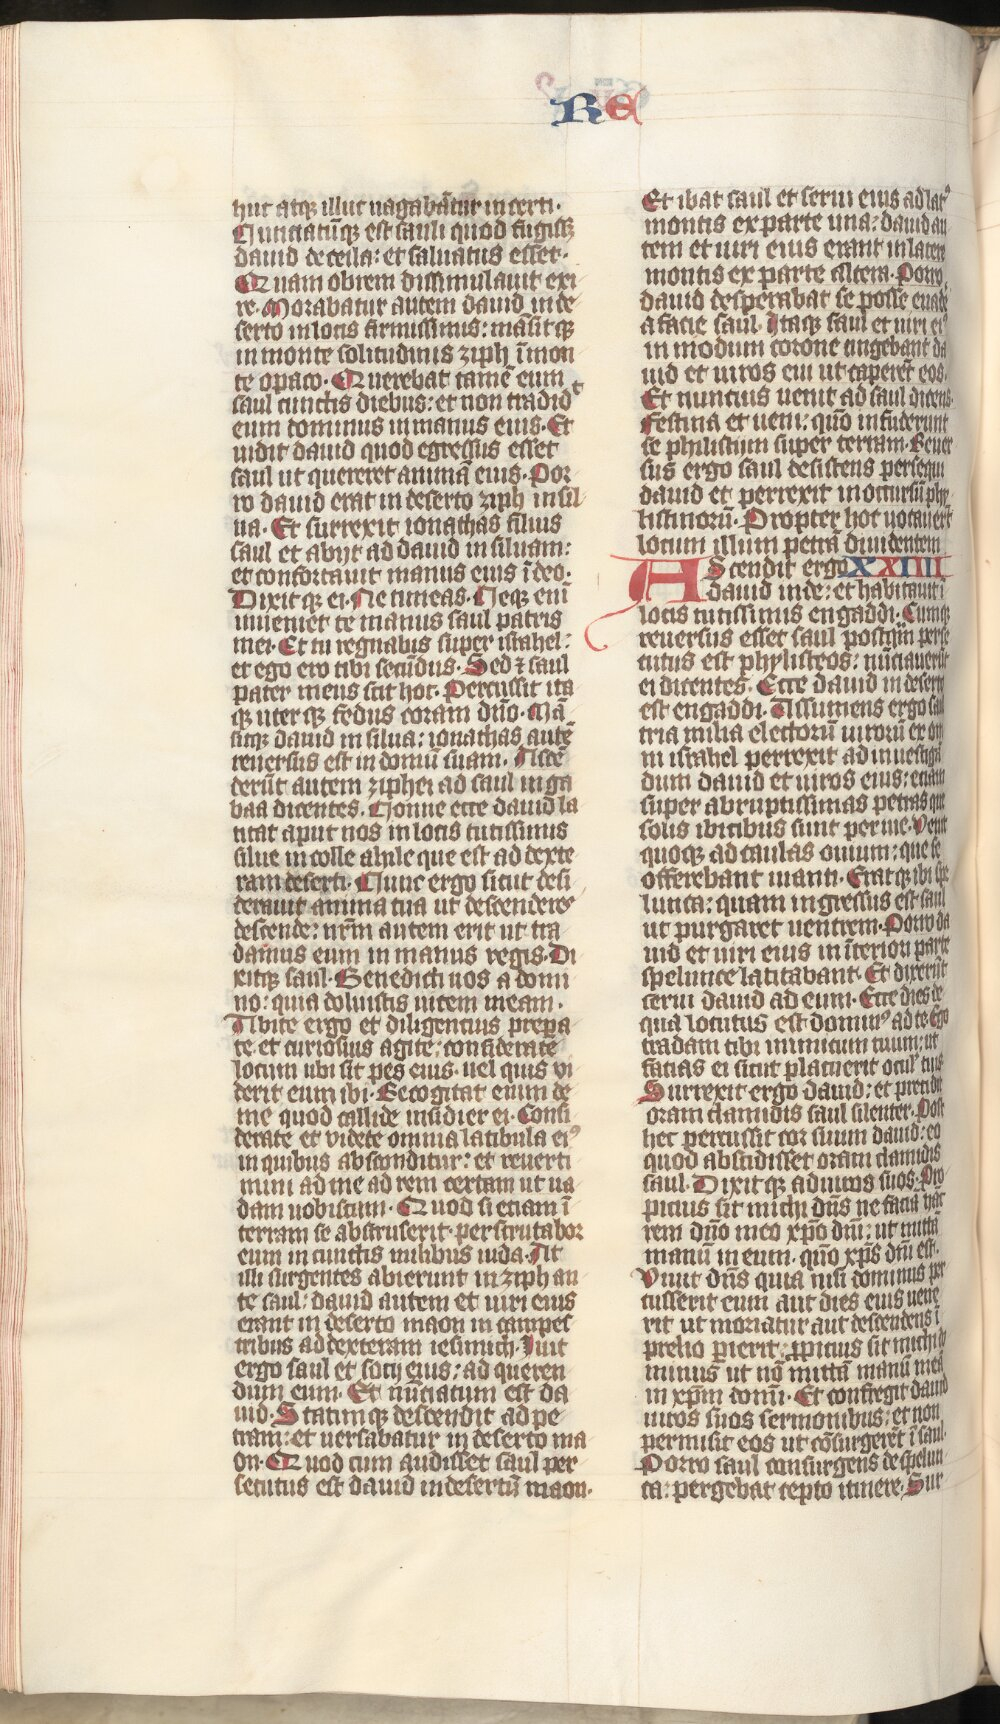 Re
huc atqꝫ illuc uagabãtur incerti.
Nunciatũqꝫ est sauli quod fugisset
dauid de ceila: et saluatus esset.
Quam obrem dissimulauit exi
re. Morabatur autem dauid in de
serto in locis firmissimis: mãsitqꝫ
in monte solitudinis ziph ĩ mon
te opaco. Querebat tamẽ eum
saul cunctis diebus: et non tradidᵗ
eum dominus in manus eius. Et
uidit dauid quod egressus esset
saul ut quereret animã eius. Por
ro dauid erat in deserto ziph in sil
ua. Et surrexit ionathas filius
saul et abijt ad dauid in siluam:
et confortauit manus eius ĩ deo.
Dixitqꝫ ei. Ne timeas. Neqꝫ eni
inueniet te manus saul patris
mei. Et tu regnabis super israhel:
et ego ero tibi secũdus. Sed ꝛ saul
pater meus scit hoc. Percussit ita
qꝫ uterqꝫ fedus coram dño. Mã
sitqꝫ dauid in silua: ionathas autẽ
reuersus est in domũ suam. Ascẽ
derũt autem ziphei ad saul in ga
baa dicentes. Nonne ecce dauid la
titat aput nos in locis tutissimis
silue in colle achile que est ad dexte
ram deserti. Nunc ergo sicut desi
derauit anima tua ut descenderes
descende: nr̃m autem erit ut tra
damus eum in manus regis. Di
xitqꝫ saul. Benedicti uos a domi
no: quia doluistis uicem meam.
Abite ergo et diligencius prepa
te. et curiosius agite: considerate
locum ubi sit pes eius. uel quis vi
derit eum ibi. Recogitat enim de
me quod callide insidier ei. Consi
derate et videte omnia latibula eiꝰ
in quibus absconditur: et reuerti
mini ad me ad rem certam ut ua
dam uobiscum. Quod si etiam ĩ
terram se abstruserit. perscrutabor
eum in cunctis milibus iuda. At
illi surgentes abierunt in ziph an
te saul: dauid autem et uiri eius
erant in deserto maon in campes
tribus ad dexteram iesimuth. Iuit
ergo saul et socij eius: ad queren
dum eum. Et nũciatum est da
uid. Statimqꝫ descendit ad pe
tram: et uersabatur in deserto ma
on. Quod cum audisset saul per
secutus est dauid in desertũ maon.
Et ibat saul et serui eius ad latꝰ
montis ex parte una: dauid au
tem et uiri eius erant in latere
montis ex parte altera. Porro
dauid desperabat se posse euadẽ
a facie saul. Itaqꝫ saul et uiri eiꝰ
in modum corone cingebant da
uid et uiros eiu ut caperẽt eos.
Et nuncius uenit ad saul dicens.
Festina et ueni: quõ infuderunt
se philistiim super terram. Reuer
sus̃ ergo saul desistens persequi
dauid et perrexit in occursũ phy
listinorũ. Propter hoc uocauerũt
locum illum petrã diuidentem
Ascendit ergo XXIIII
dauid inde: et habitauit ĩ
locis tutissimis engaddi. Cumqꝫ
reuersus esset saul postq̃m perse
cutus est phylisteos: nũciauerũt
ei dicentes. Ecce dauid in deserto
est engaddi. Assumens ergo saul
tria milia electorũ uirorũ ex om
ni israhel perrexit ad inuestigã
dum dauid et uiros eius: eciam
super abruptissimas petras que
solis ibicibus sunt peruie. Venit
quoqꝫ ad caulas ouium: que se
offerebant uianti. Eratqꝫ ibi spe
lunca: quam ingressus est saul
ut purgaret uentrem. Porro da
uid et uiri eius in ĩteriori parte
spelunce latitabant. Et dixerũt
serui dauid ad eum. Ecce dies de
qua locutus est dominꝰ ad te Ego
tradam tibi inimicum tuum: ut
facias ei sicut placuerit oculꝭ tuis
Surrexit ergo dauid: et precidit
oram clamidis saul silenter. Post
hec percussit cor suum dauid: eo
quod abscidisset oram clamidis
saul. Dixitqꝫ ad uiros suos. Pro
picius sit michi dñs ne faciã hãc
rem dño meo xp̃o dñi: ut mittã
manũ in eum. quõ xp̃s dñi est.
Viuit dñs quia nisi dominus per
cusserit eum aut dies eius uene
rit ut moriatur aut descendens ĩ
prelio perierit: propicius sit michi do
minus ut nõ mittã manũ meã
in xp̃m domĩ. Et confregit dauid
uiros suos sermonibus: et non
permisit eos ut cõsurgerẽt ĩ saul.
Porro saul consurgens de spelun
ca: pergebat cepto itinere. Sur